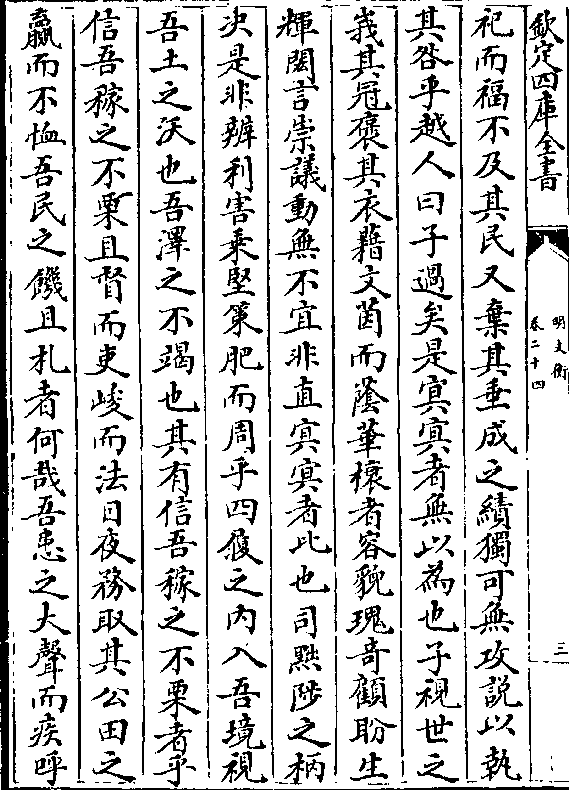 欽定四庫全書
明文衡
卷二十四
三
祀而福不及其民又棄其垂成之績獨可無攻説以執
其咎乎越人曰子過矣是冥冥者無以為也子視世之
峩其冠褒其衣藉文茵而蔭華榱者容貌瑰奇顧盼生
輝閎言崇議動無不宜非直冥冥者比也司黜陟之柄
决是非辨利害乗堅策肥而周乎四履之内入吾境視
吾土之沃也吾澤之不竭也其有信吾稼之不栗者乎
信吾稼之不栗且督而吏峻而法日夜務取其公田之
贏而不恤吾民之饑且札者何哉吾患之大聲而疾呼